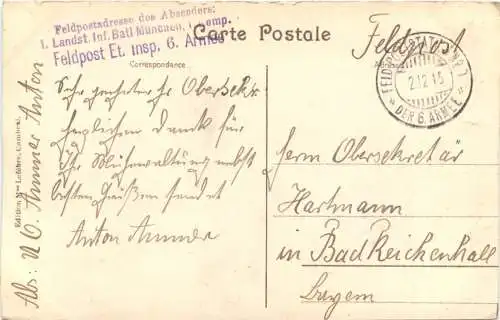 Feldpostadresse des Absenders:
1. Landst. Inf. Batl München, 1. Komp.
Feldpost Et. Insp. 6. Armee
Carte Postale
Feldpost
Correspondance
Adresse
FELDPOSTSTATION NR 1
2.12.15
DER 6. ARMEE
Sehr geehrter Hr Obersekr.
herzlichen Dank für
Ihre Mühewaltung nebst
besten Grüßen sendet
Anton Ammer
Herrn Obersekretär
Hartmann
in Bad Reichenhall
Bayern
Abs: U/O Ammer Anton
Edition